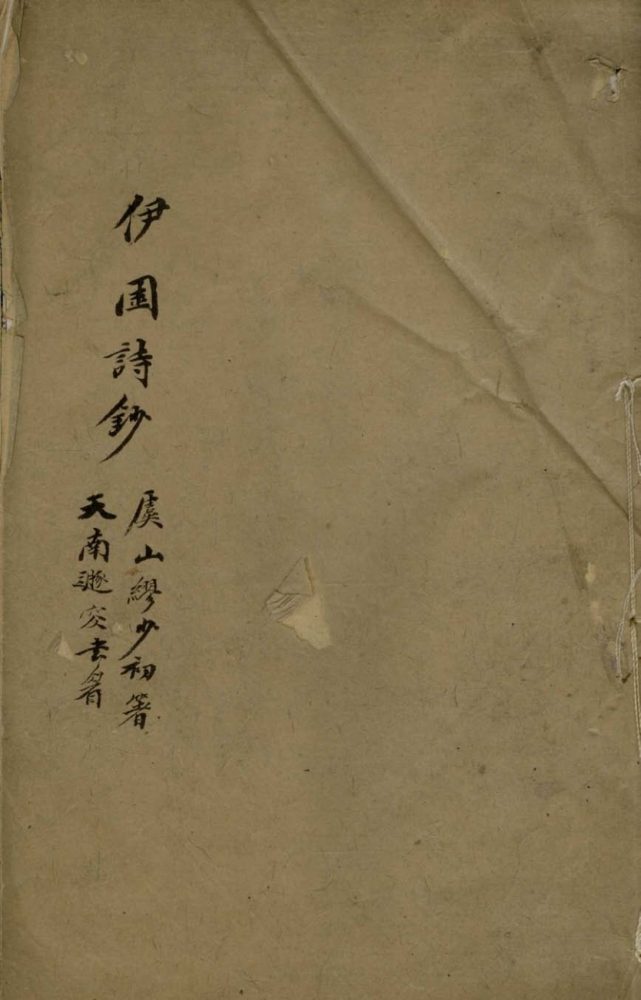 伊園詩鈔
虞山繆少初著
天南遯叜